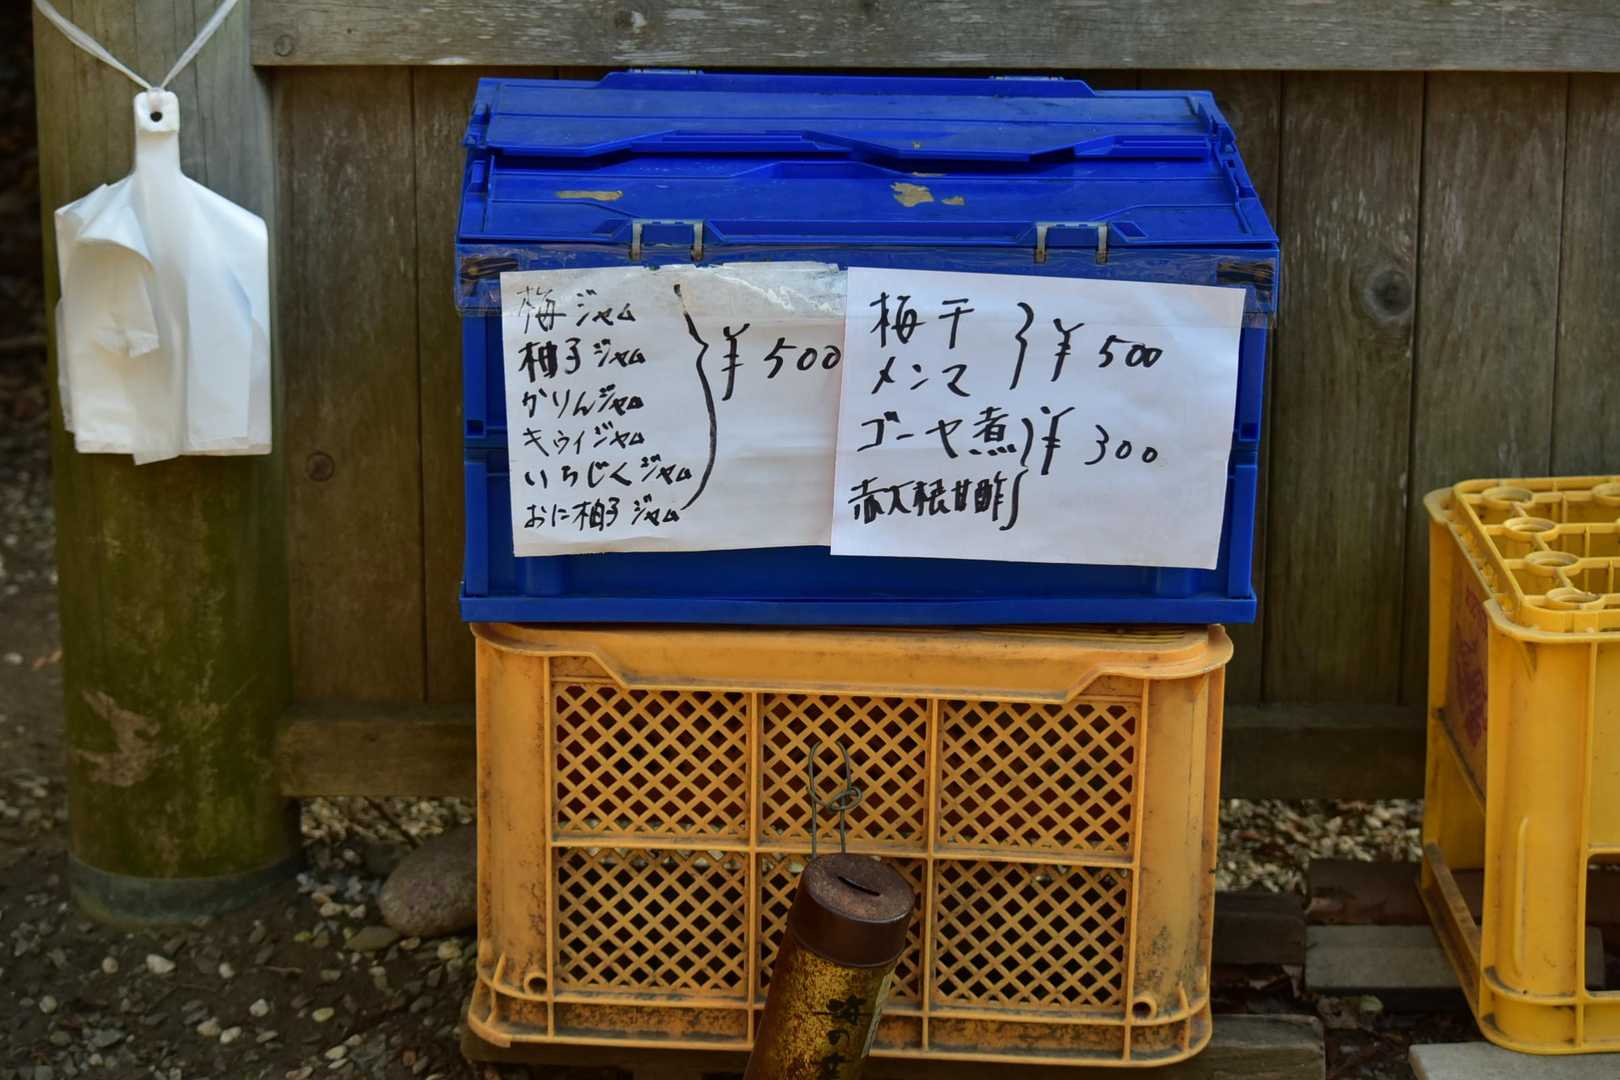 梅ジャム
柚子ジャム
かりんジャム
キウイジャム
いちじくジャム
おに柚子ジャム
¥500
梅干
メンマ
¥500
ゴーヤ煮
赤大根甘酢
¥300